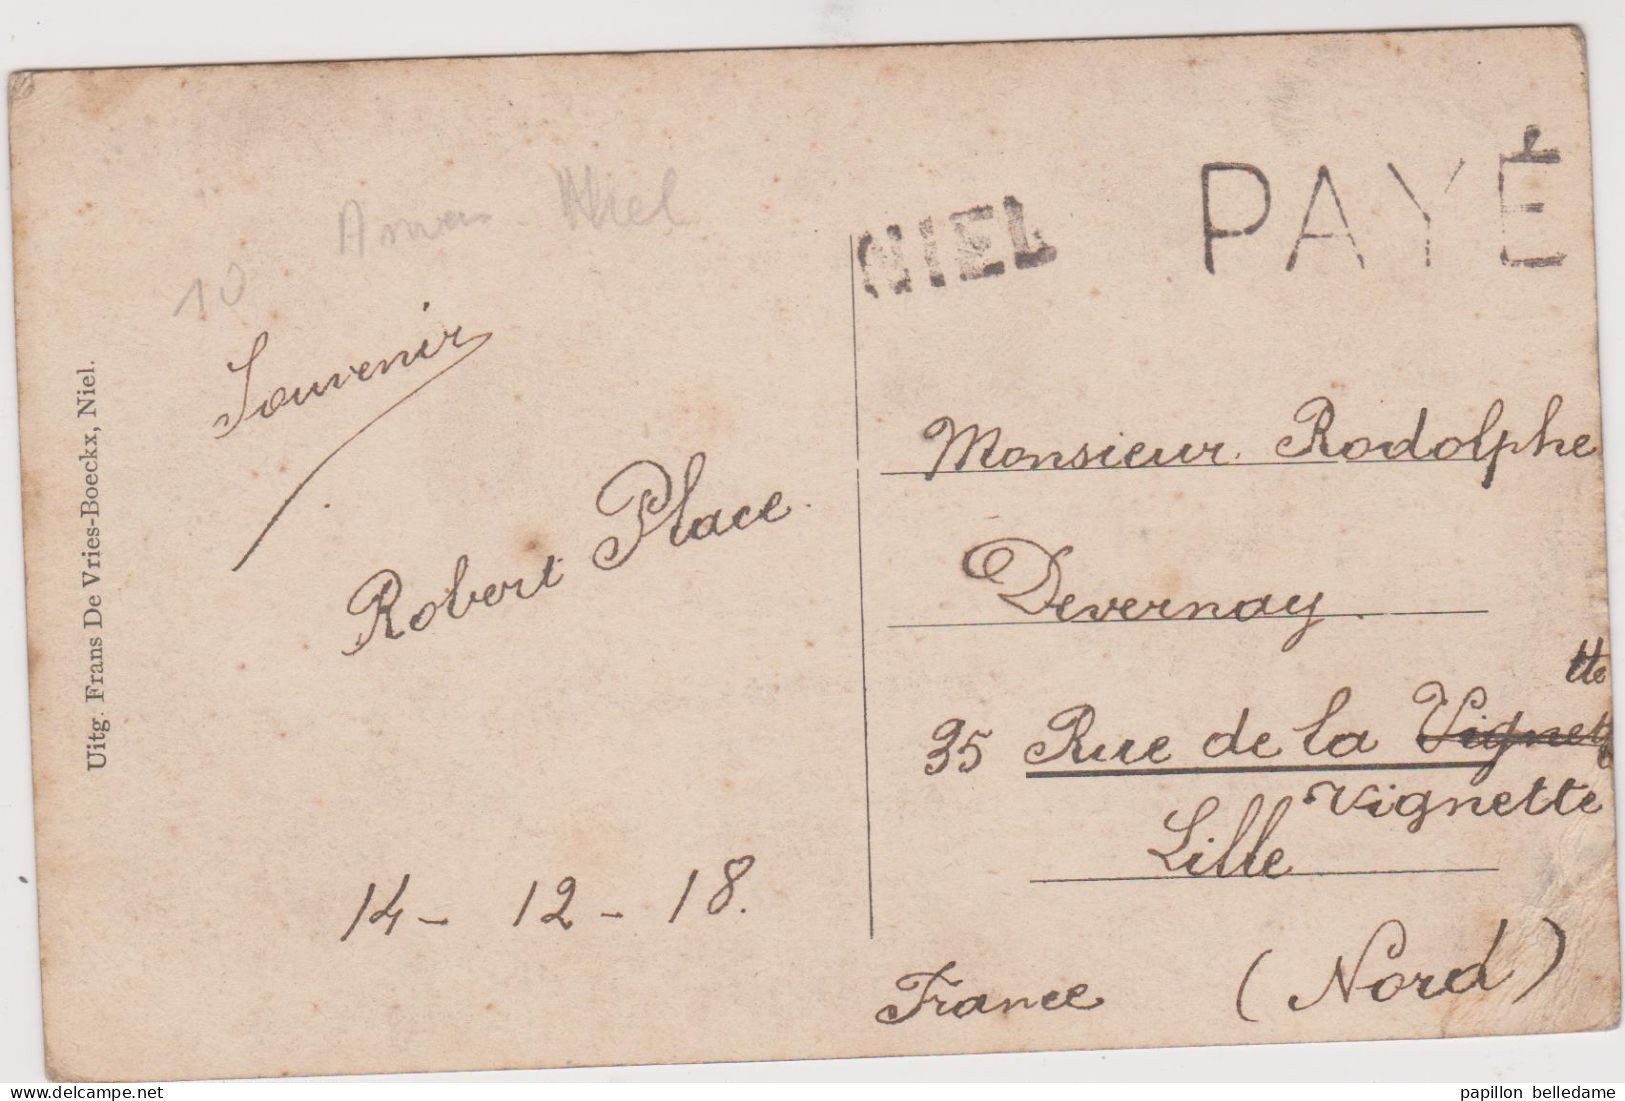 NIEL
PAYÉ
10
Souvenir
Robert Place
14 - 12 - 18.
Uitg. Frans De Vries-Boeckx, Niel.
Monsieur Rodolphe
Devernay.
tte
35 Rue de la Vignett
Vignette
Lille
France (Nord)
papillon belledame